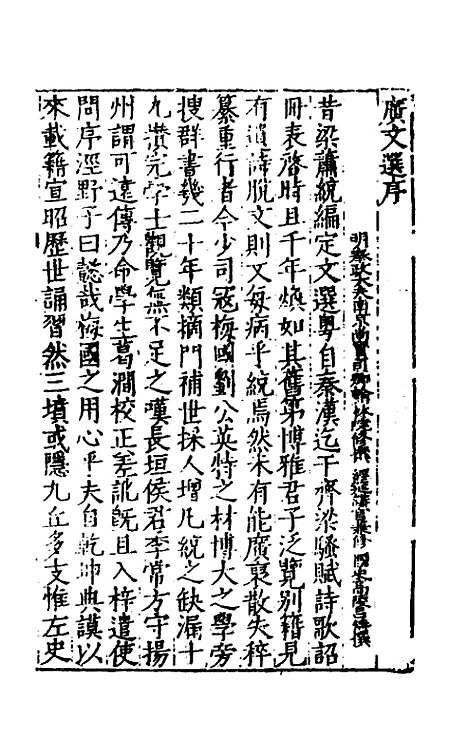 廣文選序
明奉政大夫南京尚寶司卿翰林院修撰 經筵講官兼修 國史高陵呂柟撰
昔梁蕭統編定文選粵自秦漢迄于齊梁騷賦詩歌詔
冊表啓時且千年煥如其舊第博雅君子泛覽别籍見
有遺詩脫文則又每病乎統焉然未有能廣裒散失稡
纂重行者今少司寇梅國劉公英特之材博大之學旁
搜群書幾二十年類摘門補世採人增凡統之缺漏十
九讚完學士觀覽無不足之嘆長垣侯君李常方守揚
州謂可遠傳乃命學生葛澗校正差訛既且入梓遣使
問序涇野子曰懿哉梅國之用心乎夫自乾坤典謨以
來載籍宣昭歷世誦習然三墳或隱九丘多支惟左史